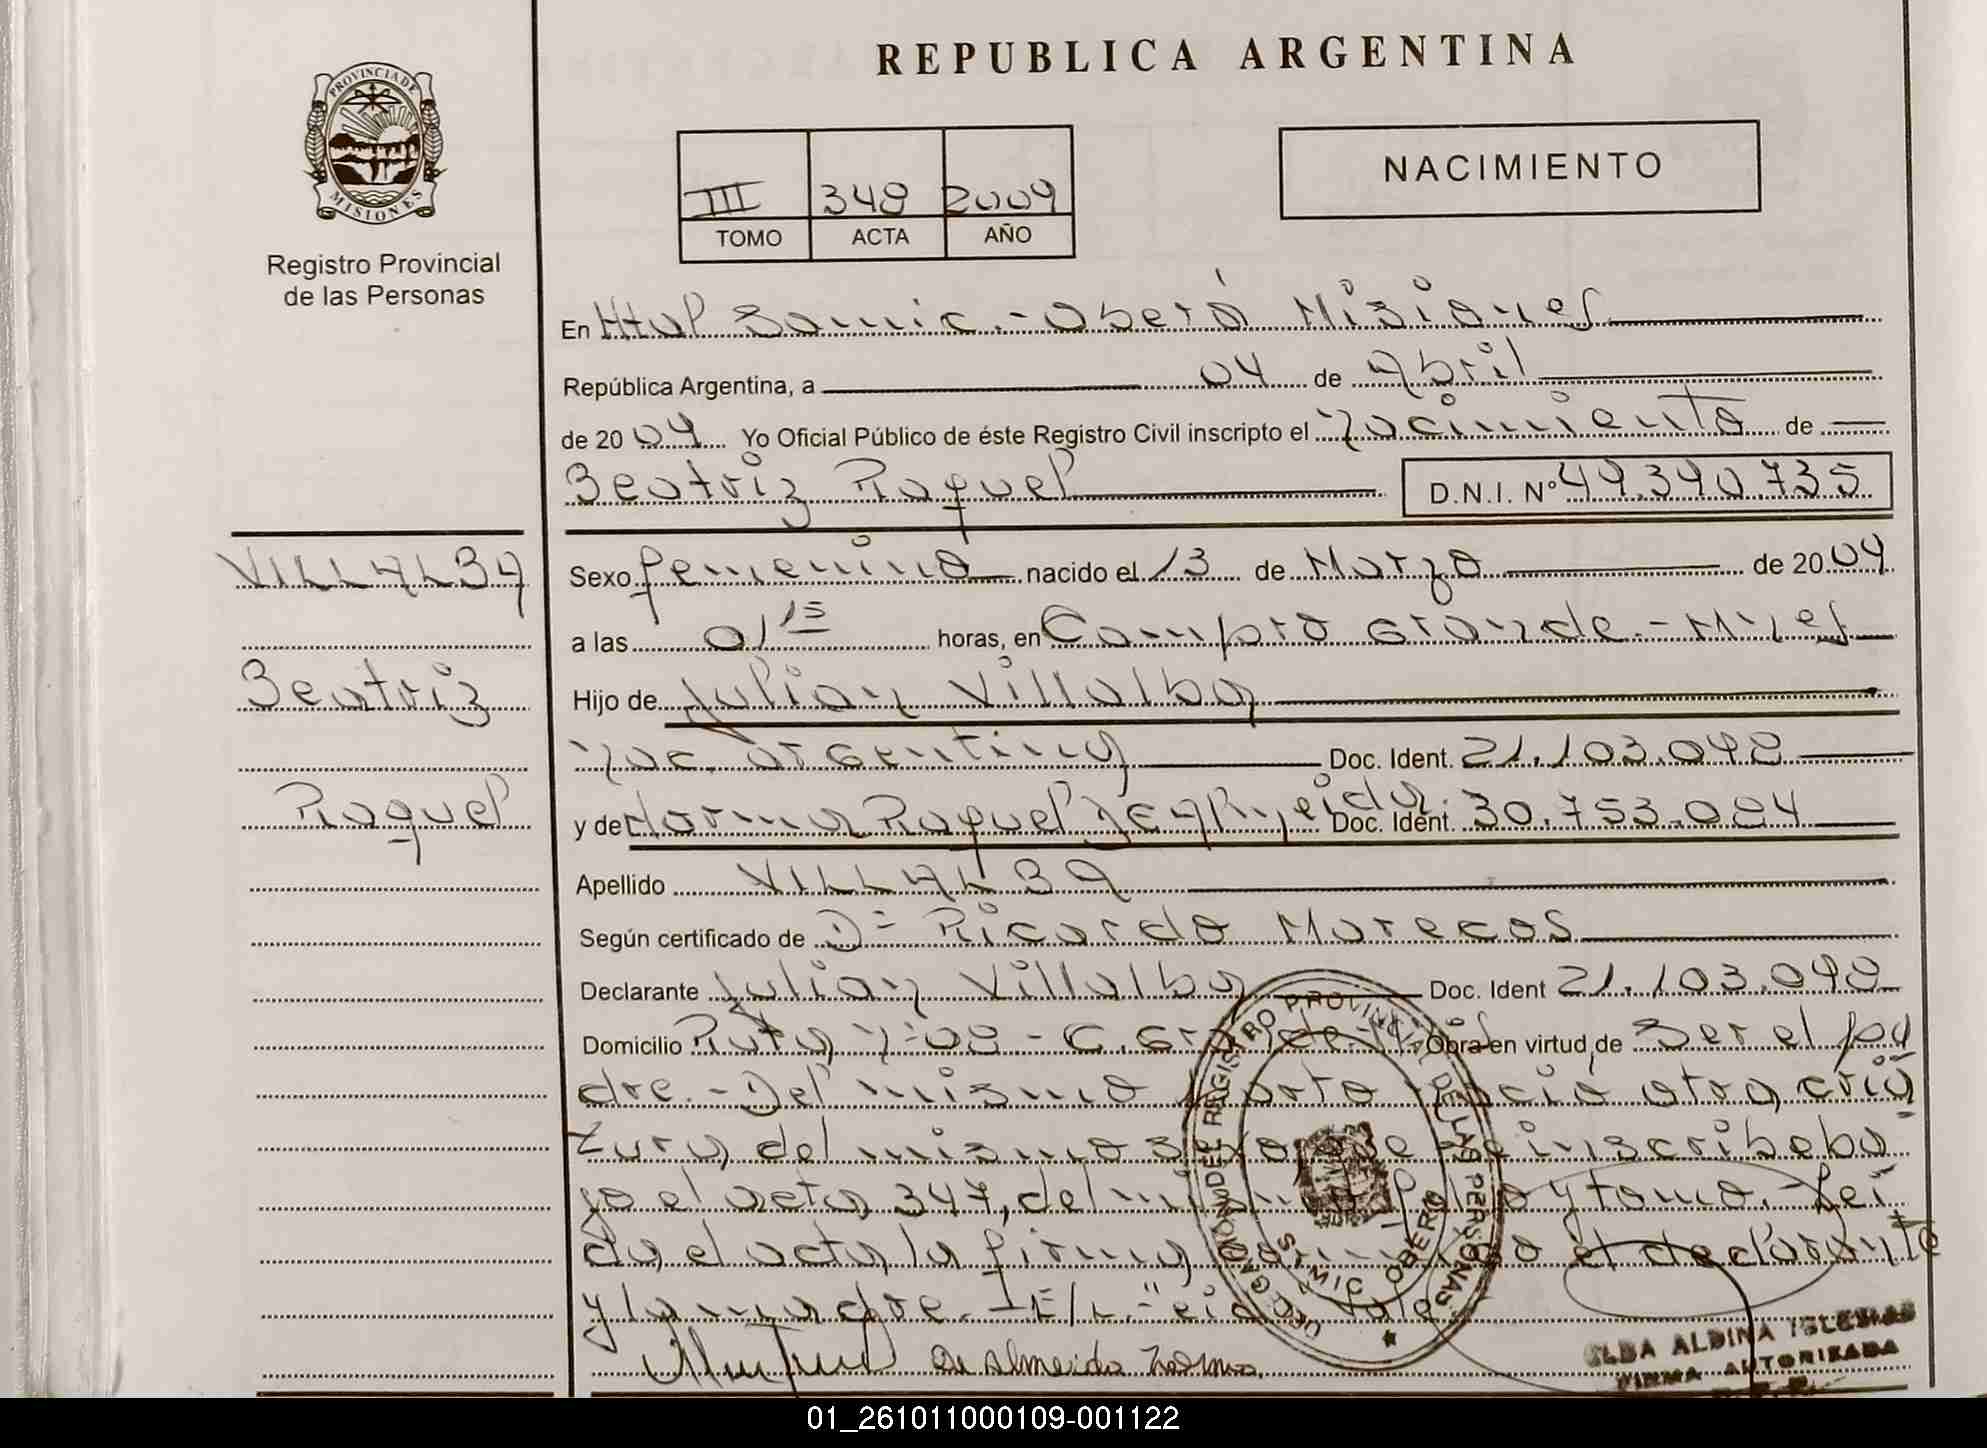 REPUBLICA ARGENTINA
PROVINCIA DE
MISIONES
Registro Provincial
de las Personas
NACIMIENTO
III 348 2009
TOMO ACTA AÑO
En Htal Samic.- Oberá Misiones
República Argentina, a 04 de Abril
de 2009 Yo Oficial Público de éste Registro Civil inscripto el nacimiento de
Beatriz Raquel D.N.I. Nº 49.390.735
VILLALBA
Beatriz
Raquel
Sexo femenino nacido el 13 de Marzo de 2009
a las 01 15 horas, en Campo Grande.- Mnes
Hijo de Julian Villalba
nac. argentina Doc. Ident. 21.103.098
y de Norma Raquel Doc. Ident. 30.753.084
Apellido VILLALBA
Según certificado de Dº Ricardo Marecos
Declarante Julian Villalba Doc. Ident 21.103.098
Domicilio Ruta Nº 08 - C. Grande.- Obra en virtud de Ser el pa
dre.- Del mismo parto nació otra cria
tura del mismo sexo, que se inscribe ba
jo el acta 347, del mismo folio y tomo.- Lei
da el acta, la firma el declarante
y la madre.- E/L.- "eid" Vale
de Almeida Norma
DELEGACION DE REGISTRO PROVINCIAL DE LAS PERSONAS
SAMIC OBERA
ELBA ALDINA IGLESIAS
FIRMA AUTORIZADA
01_261011000109-001122